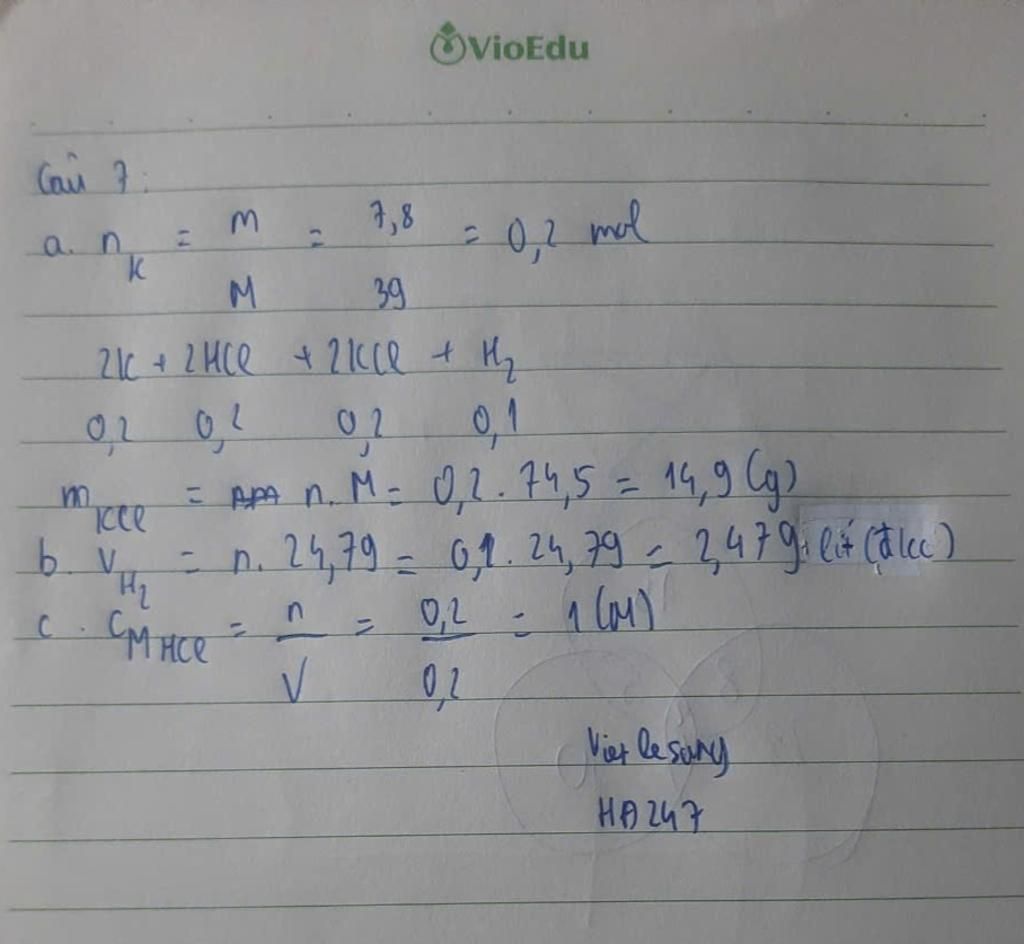 VioEdu
Câu 7:
a. n K = m / M = 7,8 / 39 = 0,2 mol
2K + 2HCl + 2KCl + H2
0,2 0,2 0,2 0,1
m KCl = n. M = 0,2 . 74,5 = 14,9 (g)
b. V H2 = n. 24,79 = 0,1 . 24,79 = 2,479 lít (đkc)
c. CM HCl = n / V = 0,2 / 0,2 = 1 (M)
HA247